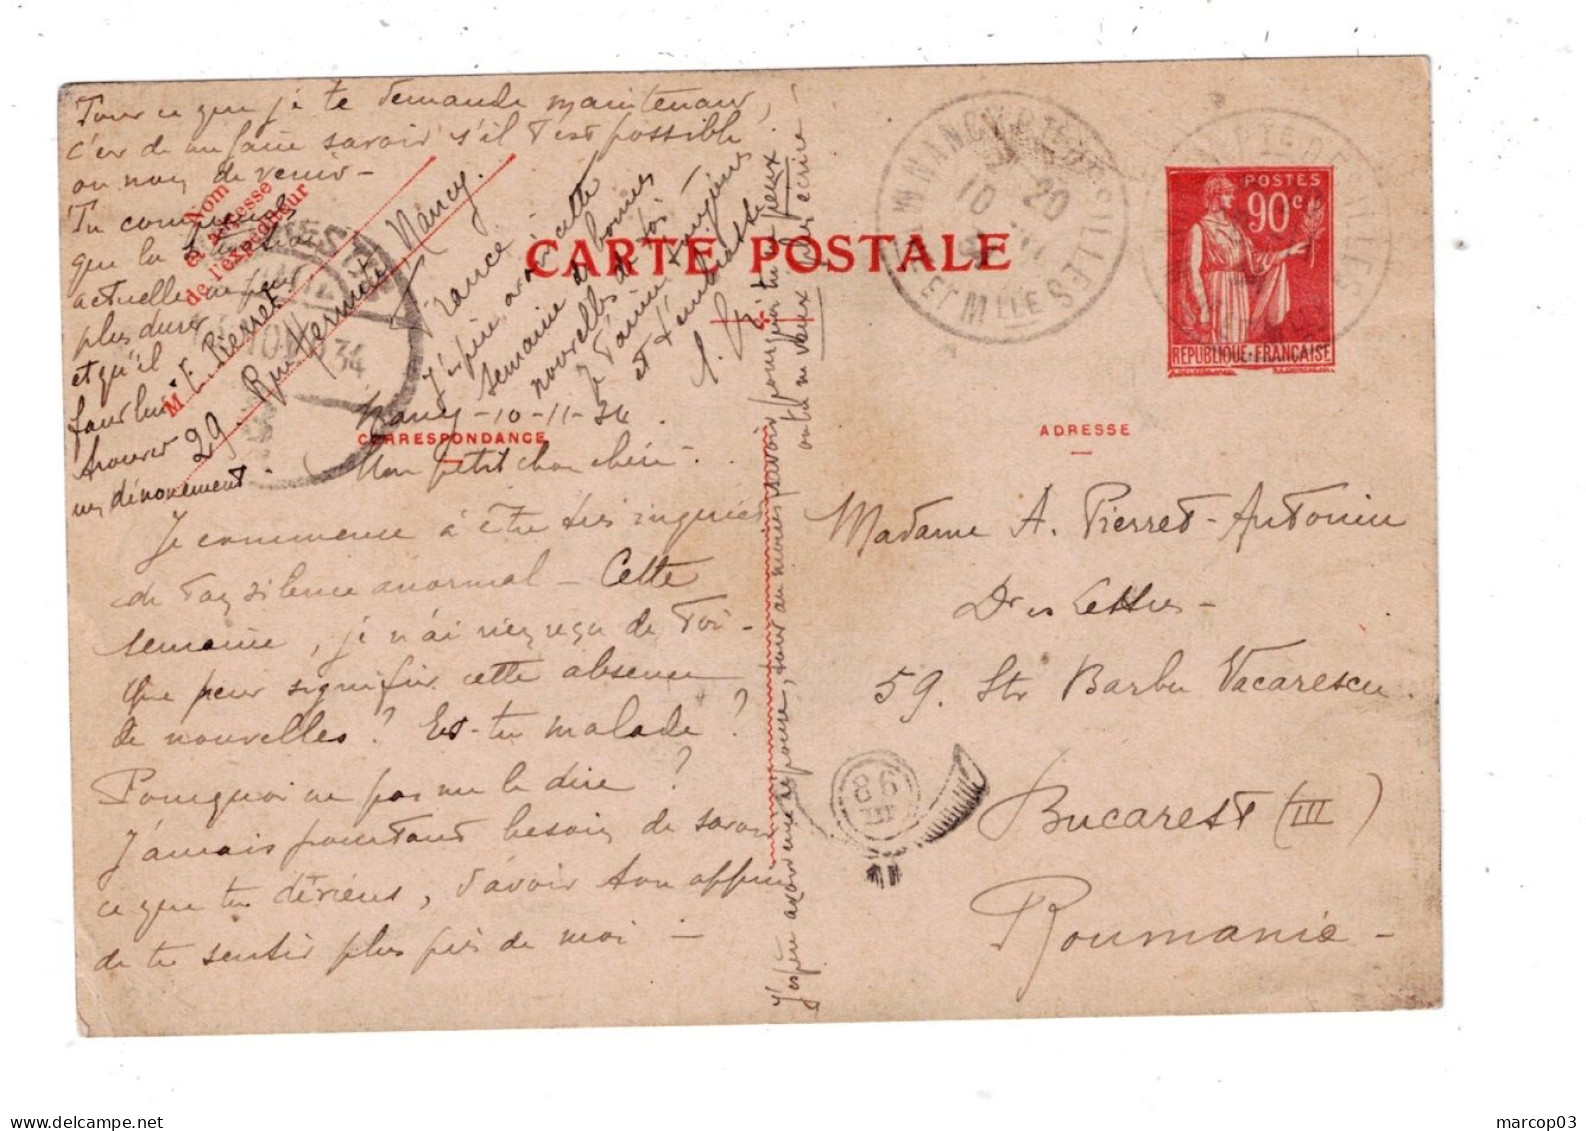 CARTE POSTALE
POSTES
90c
REPUBLIQUE·FRANÇAISE
Nom
et adresse
de l'expéditeur
M. Pierret
29 Rue Hermite Nancy.
France
CORRESPONDANCE
ADRESSE
Nancy - 10-11-34
Mon petit chou chéri -
Je commence à être très
de ton silence anormal - Cette
semaine, je n'ai rien reçu de Toi -
Que peut signifier cette absence
de nouvelles? Es-tu malade?
Pourquoi ne pas me le dire?
J'aurais pourtant besoin de savoir
ce que tu deviens, d'avoir ton
de te sentir plus près de moi -
Tout ce que je te demande maintenant,
c'est de me faire savoir s'il t'est possible
ou non de venir -
Tu comprends
que la situation
actuelle ne peut
plus durer
et qu'il
faut lui
trouver
un dénouement.
J'espère avoir cette
semaine de bonnes
nouvelles de toi -
Je t'aime toujours
et t'embrasse
J'espère avoir une réponse, pour au moins savoir pourquoi tu ne peux
ou tu ne veux plus écrire!
Madame A. Pierret-Antonin
Dr ès Lettres -
59. Str Barbu Vacarescu.
Bucarest (III)
Roumanie -
10
20
34
86
III
marcop03